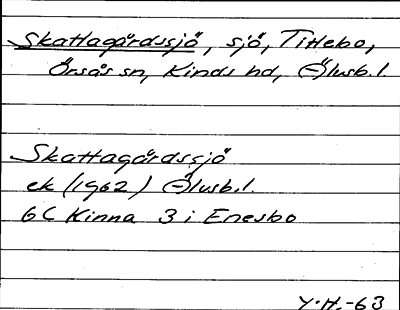 Skattagårdssjö, sjö, Tittebo,
Örsås sn, Kinds hd, Älvsb.l.
Skattagårdssjö
ek (1962) Älvsb.l.
6C Kinna 3 i Enesbo
Y.H.-63